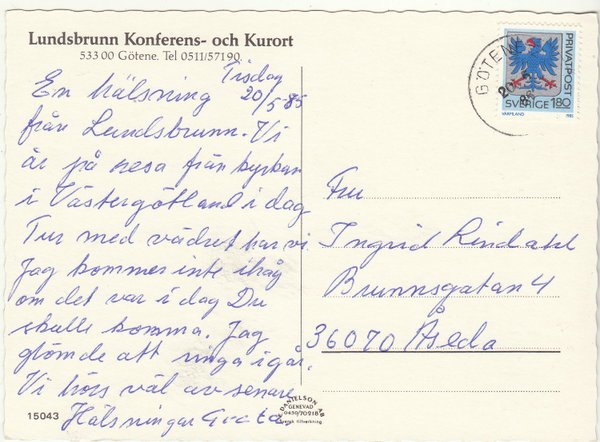 Lundsbrunn Konferens- och Kurort
533 00 Götene. Tel 0511/57190
Tisdag
20/5 85
En hälsning
från Lundsbrunn. Vi
är på resa från kyrkan
i Västergötland i dag
Tur med vädret har vi
Jag kommer inte ihåg
om det var i dag Du
skulle komma. Jag
glömde att ringa igår.
Vi hörs väl av senare
Hälsningar Greta
15043
DANIELSON AB
GENEVAD
0430/70218
Svensk tillverkning
GÖTENE
20.5
PRIVATPOST
SVERIGE 180
VÄRMLAND
1985
Fru
Ingrid Rindahl
Brunnsgatan 4
36070 Åseda